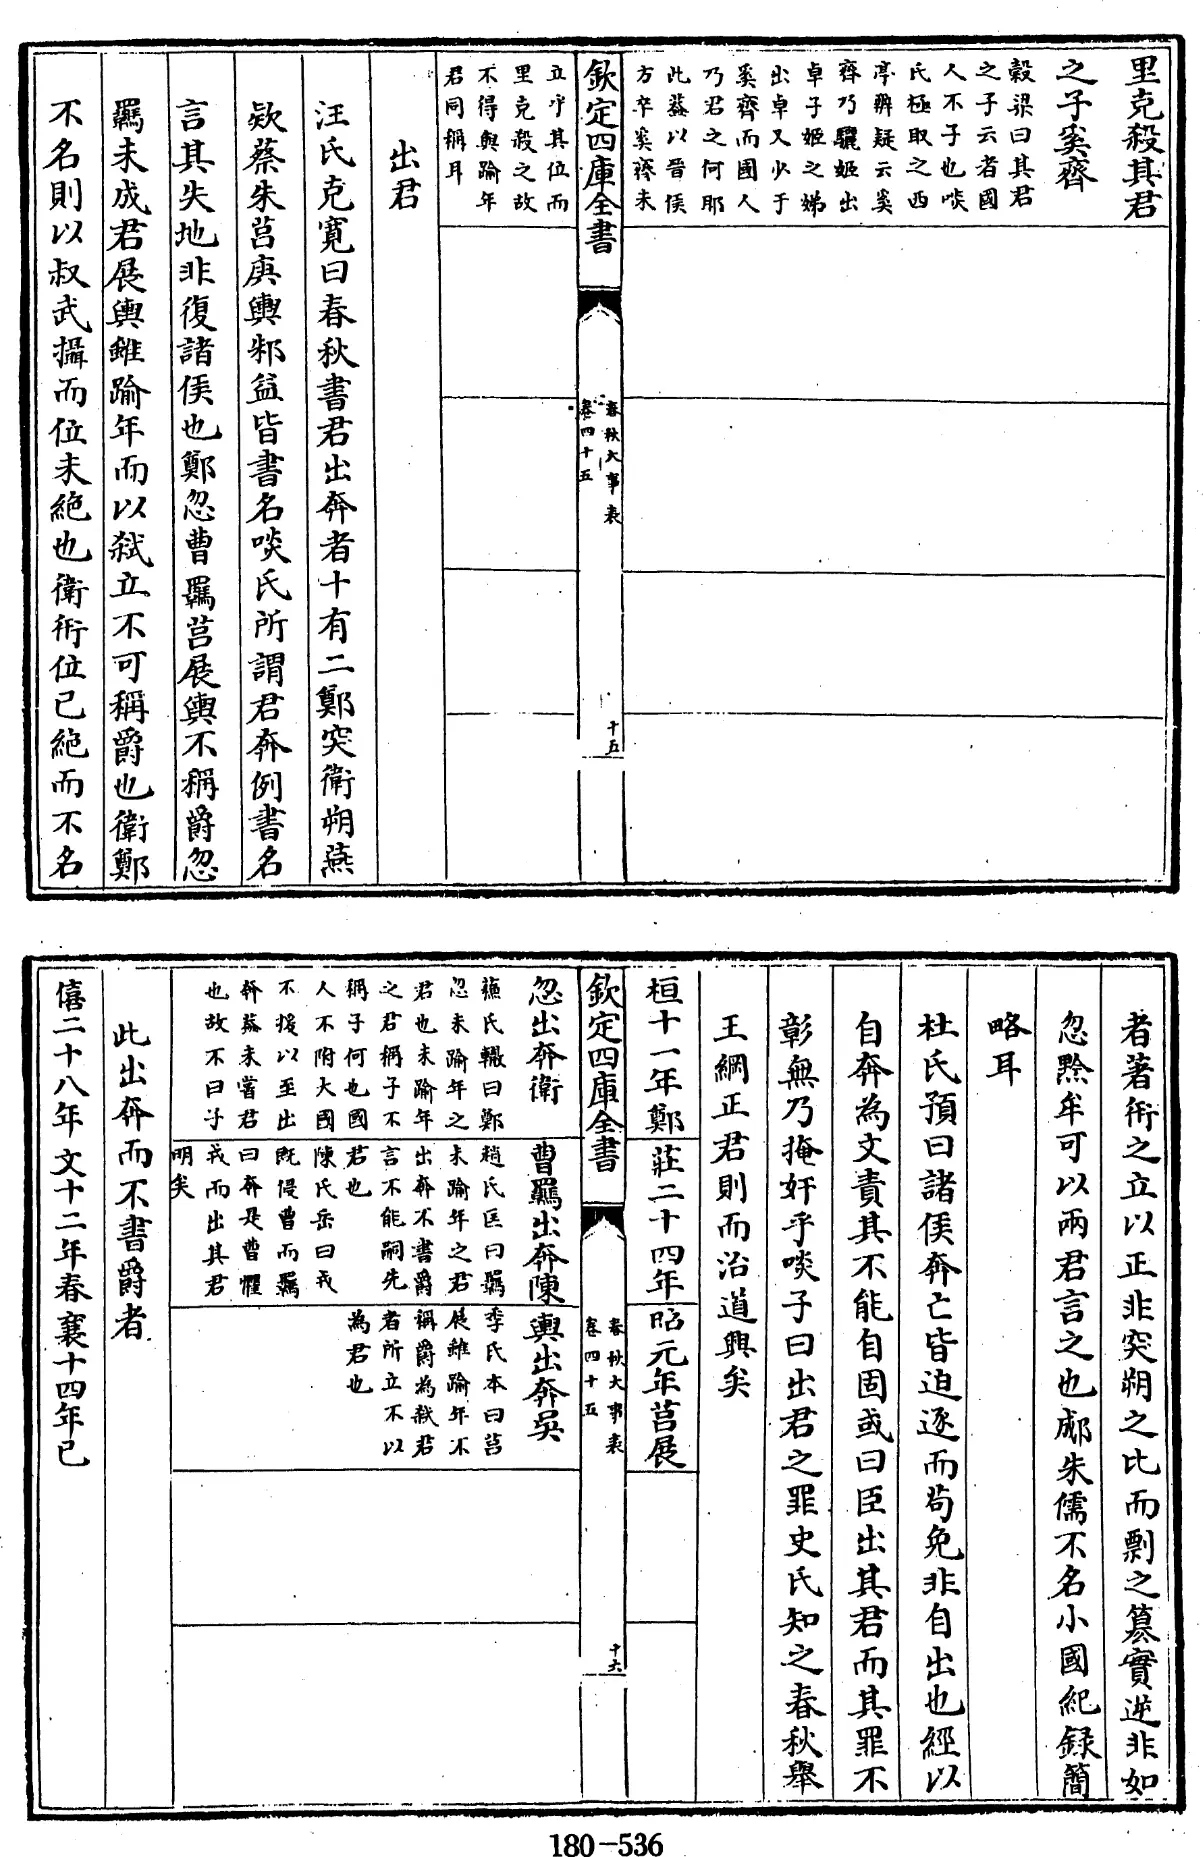 里克殺其君
之子奚齊
穀梁曰其君
之子云者國
人不子也啖
氏極取之西
亭辨疑云奚
齊乃驪姬出
卓子姬之娣
出卓又少于
奚齊而國人
乃君之何耶
此蓋以晉侯
方卒奚齊未
欽定四庫全書
春秋大事表
卷四十五
十五
立乎其位而
里克殺之故
不得與踰年
君同稱耳
出君
汪氏克寛曰春秋書君出奔者十有二鄭突衛朔燕
欵蔡朱莒庚輿邾益皆書名啖氏所謂君奔例書名
言其失地非復諸侯也鄭忽曹羈莒展輿不稱爵忽
羈未成君展輿雖踰年而以弑立不可稱爵也衛鄭
不名則以叔武攝而位未絶也衛衎位已絶而不名
者著衎之立以正非突朔之比而剽之簒實逆非如
忽黔牟可以兩君言之也郕朱儒不名小國紀録簡
略耳
杜氏預曰諸侯奔亡皆迫逐而茍免非自出也經以
自奔為文責其不能自固或曰臣出其君而其罪不
彰無乃掩奸乎啖子曰出君之罪史氏知之春秋舉
王綱正君則而治道興矣
桓十一年鄭
莊二十四年
昭元年莒展
欽定四庫全書
春秋大事表
卷四十五
十六
忽出奔衛
蘓氏轍曰鄭
忽未踰年之
君也未踰年
之君稱子不
稱子何也國
人不附大國
不援以至出
奔葢未嘗君
也故不曰子
曹羈出奔陳
趙氏匡曰羈
未踰年之君
出奔不書爵
言不能嗣先
君也
陳氏岳曰戎
旣侵曹而羈
曰奔是曹懼
戎而出其君
明矣
輿出奔吳
季氏本曰莒
展雖踰年不
稱爵為弑君
者所立不以
為君也
此出奔而不書爵者
僖二十八年文十二年春襄十四年已
180-536